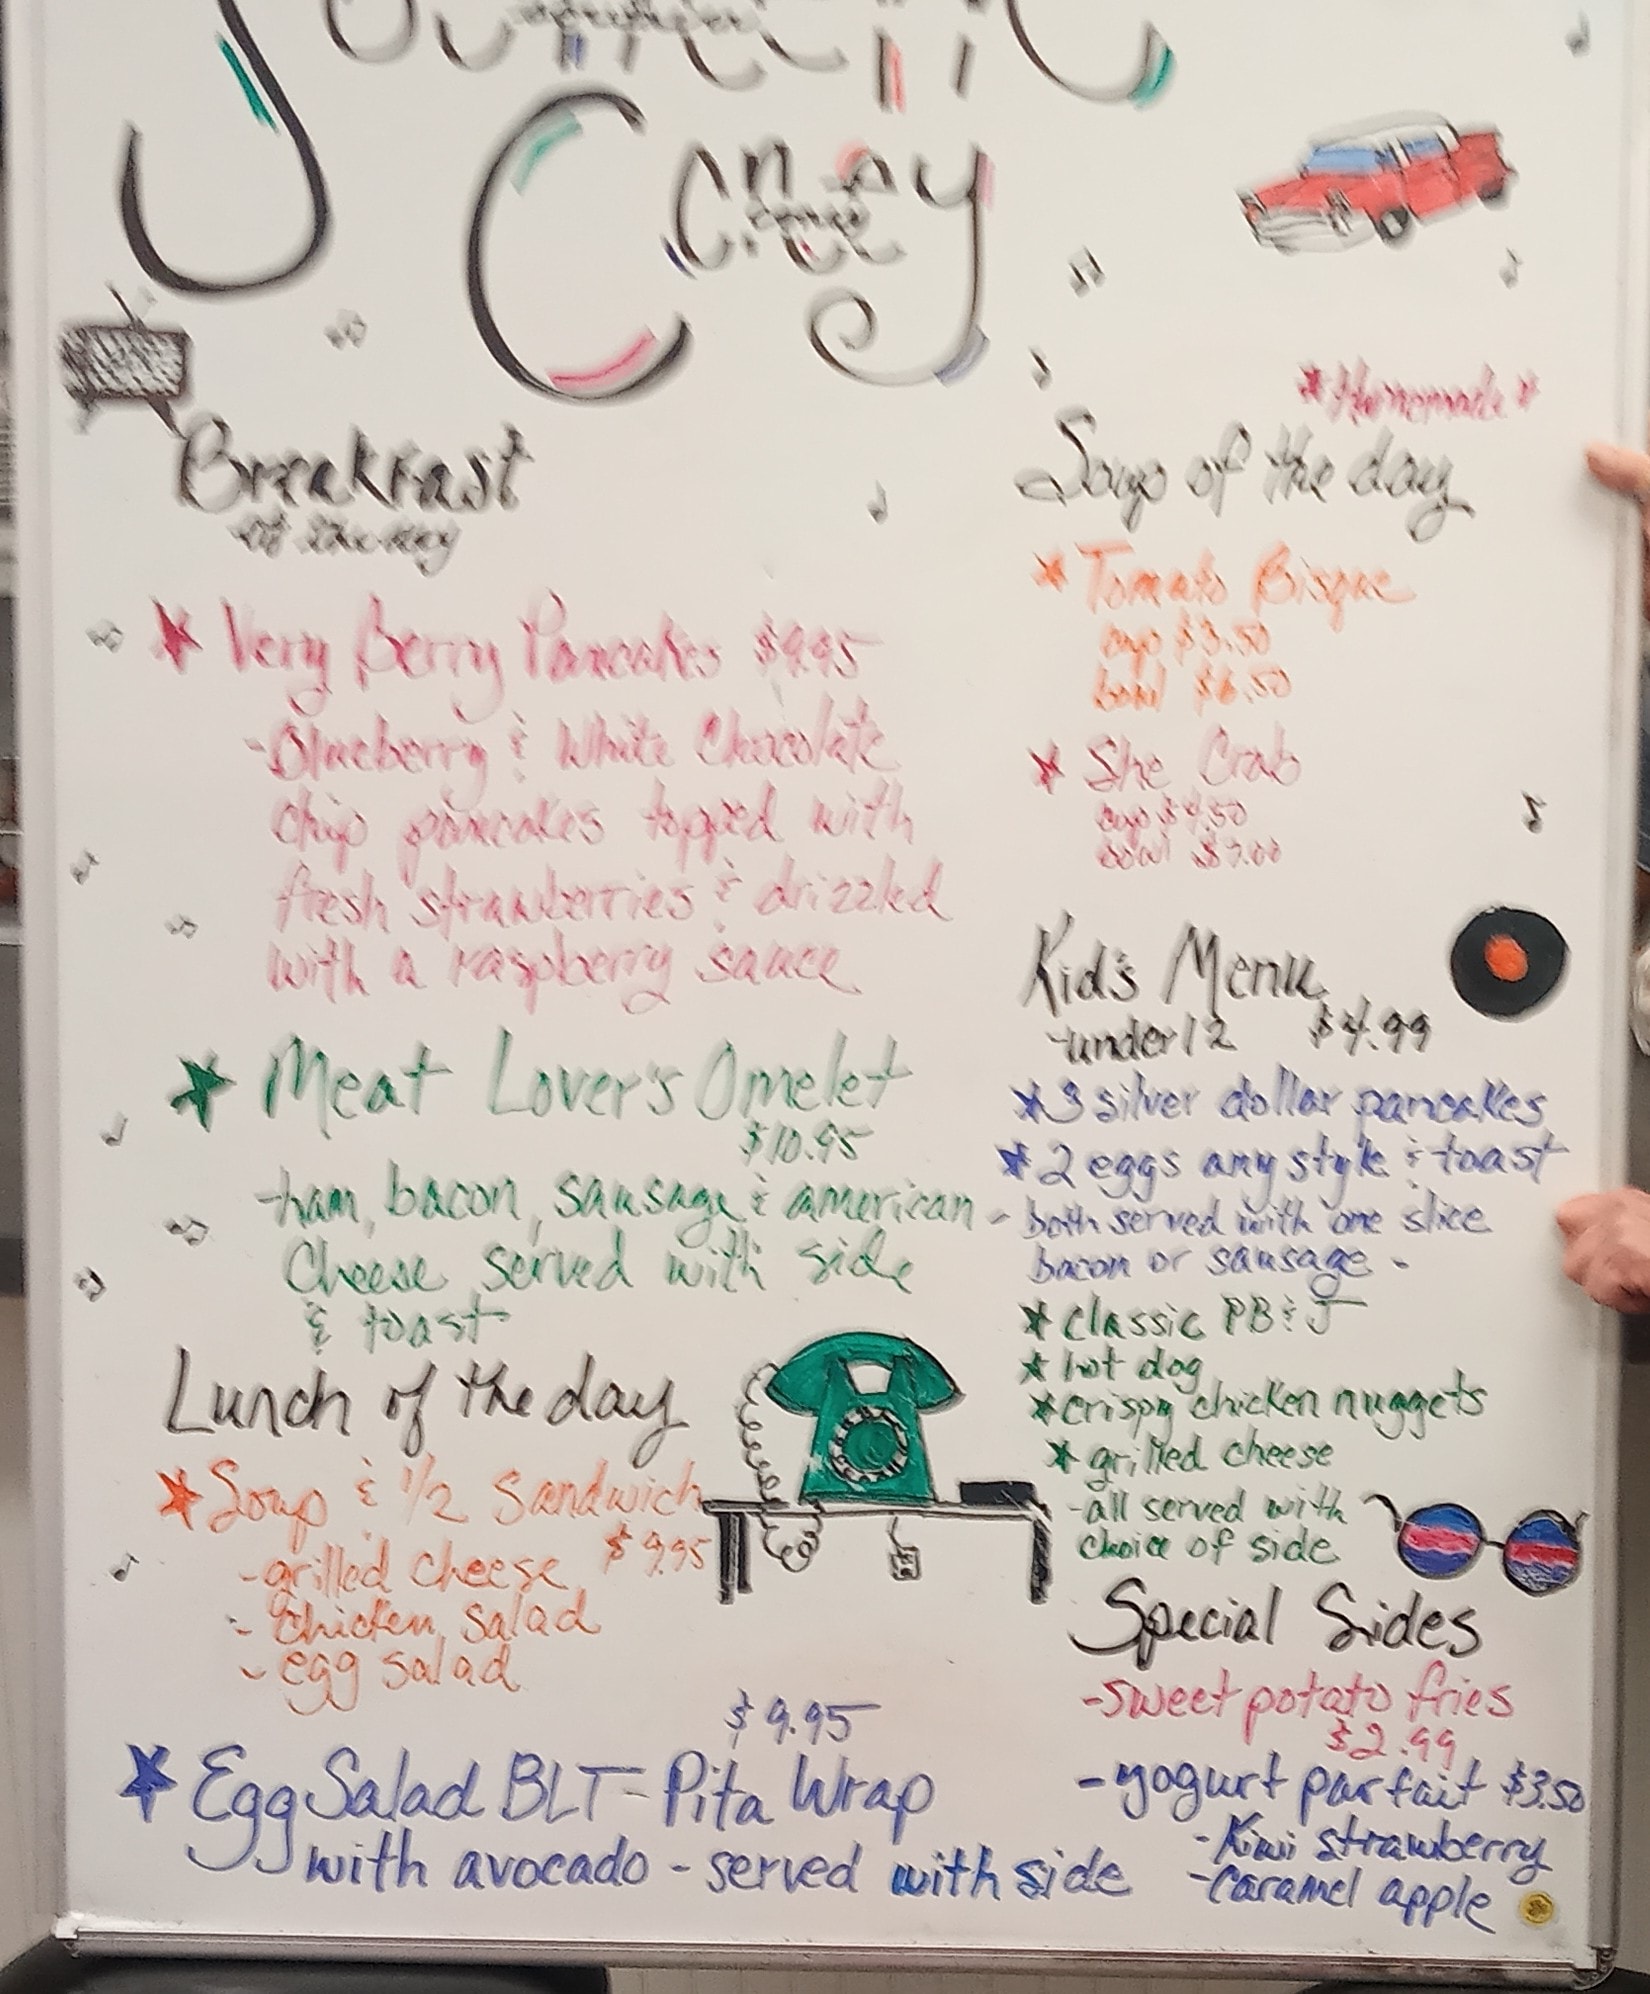 Breakfast
of the day
Very Berry Pancakes $9.95
-Blueberry & White Chocolate
chip pancakes topped with
fresh strawberries & drizzled
with a raspberry sauce
Meat Lover's Omelet
$10.95
-ham, bacon, sausage & american
Cheese served with side
& toast
Lunch of the day
Soup & 1/2 Sandwich
$9.95
-grilled cheese
- chicken salad
- egg salad
$9.95
Egg Salad BLT - Pita Wrap
with avocado - served with side
*Homemade*
Soup of the day
Tomato Bisque
cup $3.50
bowl $6.50
She Crab
cup $4.50
bowl
Kid's Menu
-under 12 $4.99
3 silver dollar pancakes
2 eggs any style & toast
- both served with one slice
bacon or sausage -
classic PB & J
hot dog
crispy chicken nuggets
grilled cheese
-all served with
choice of side
Special Sides
-sweet potato fries
$2.99
-yogurt parfait $3.50
-Kiwi strawberry
-caramel apple